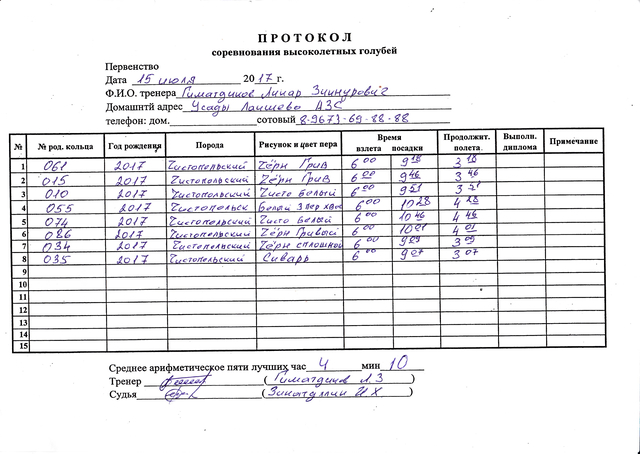 ПРОТОКОЛ
соревнования высоколетных голубей
Первенство
Дата 15 июля 2017г.
Ф.И.О. тренера Гиматдинов Линар Зиннурович
Домашнтй адрес Усады Лаишево АЗС
телефон: дом. сотовый 8-9673-69-88-88
№ № род. кольца Год рождения Порода Рисунок и цвет пера Время взлета посадки Продолжит. полета. Выполн. диплома Примечание
1 061 2017 Чистопольский Чёрн Грив 6 00 9 18 3 18
2 015 2017 Чистопольский Чёрн Грив 6 00 9 46 3 46
3 010 2017 Чистопольский Чисто белый 6 00 9 51 3 51
4 055 2017 Чистопольск Белый 3 пер хвос 6 00 10 28 4 28
5 074 2017 Чистопольск Чисто Белый 6 00 10 46 4 46
6 086 2017 Чистопольский Чёрн Гривый 6 00 10 01 4 01
7 034 2017 Чистопольский Чёрн сплошной 6 00 9 09 3 09
8 035 2017 Чистопольский Сиварь 6 00 9 07 3 07
9
10
11
12
13
14
15
Среднее арифметическое пяти лучших час 4 мин 10
Тренер (Гиматдинов Л.З)
Судья (Зинатуллин И Х)